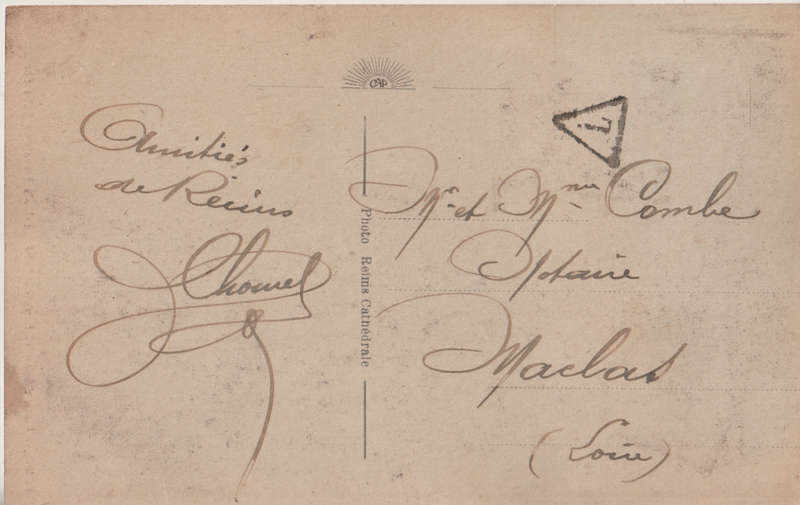 CAP
Amitiés
de Reims
Chomel
Photo Reims Cathédrale
T
Mr et Mme Combe
Notaire
Maclas
(Loire)